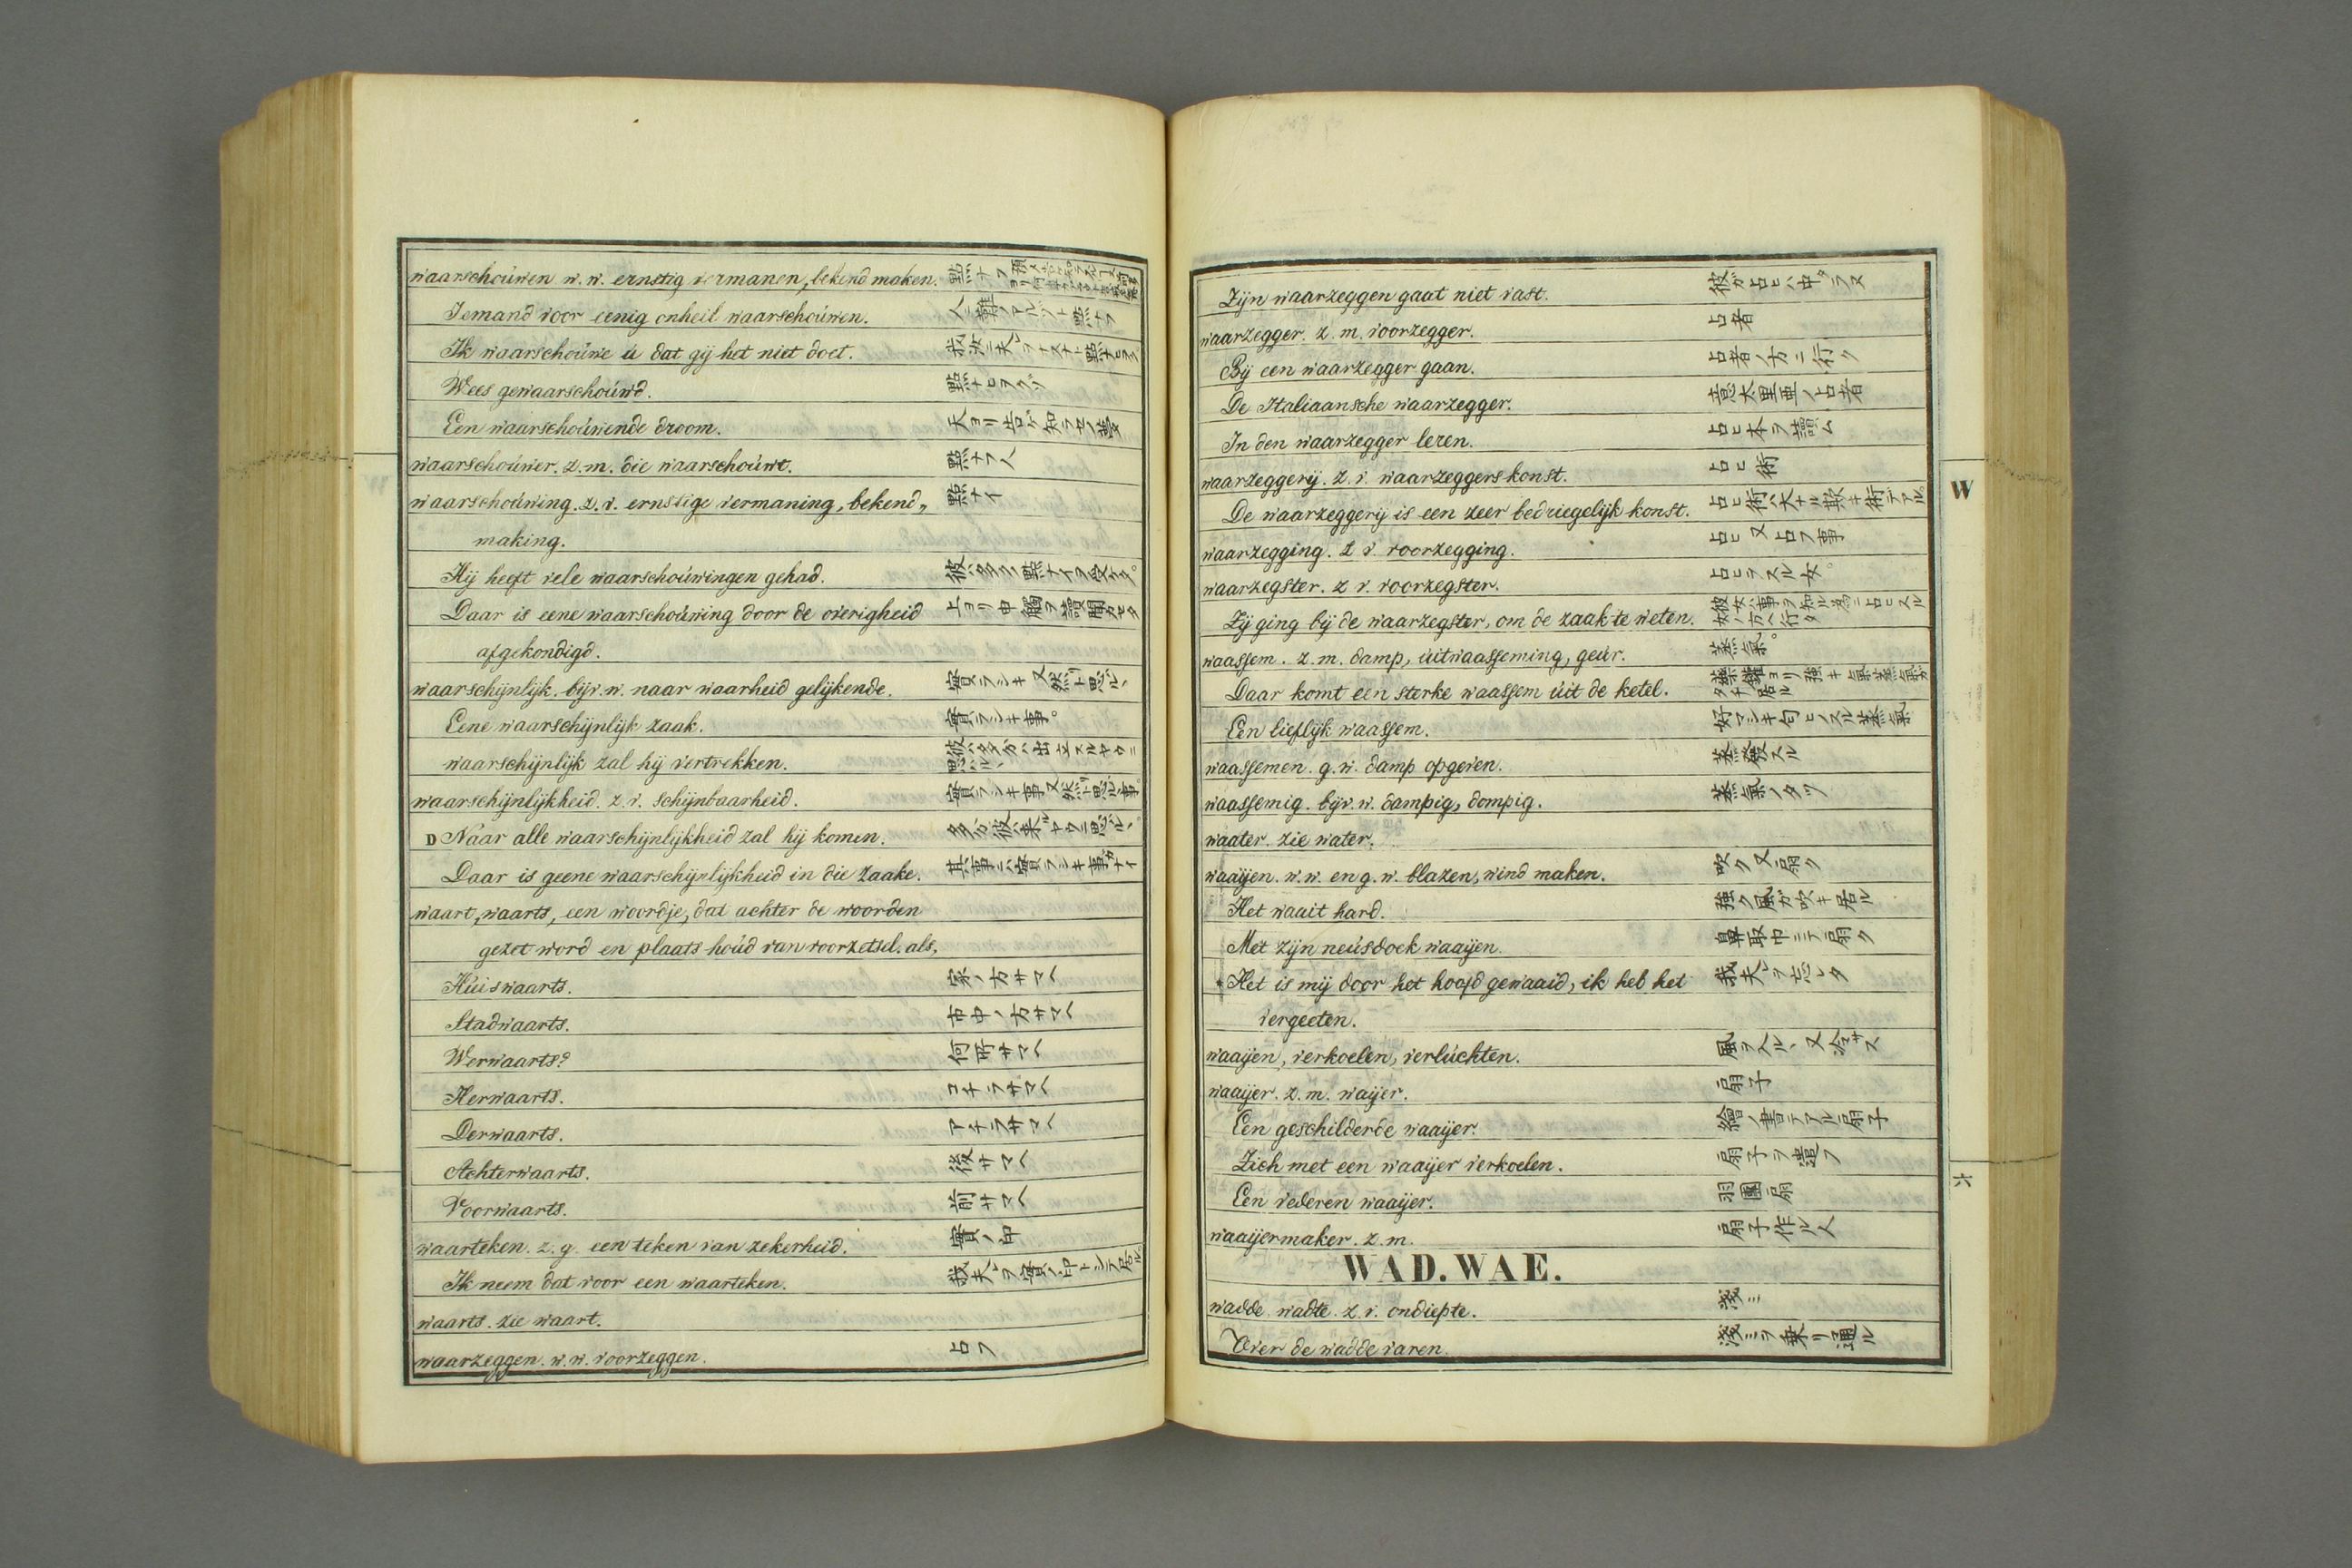 waarschoúwen w. w. ernstig vermanen, bekend maken. 點ナフ
Iemand voor eenig onheil waarschoúwen.
Ik waarschoúwe ú dat gij het niet doet.
Wees gewaarschoúwd.
Een waarschoúwende droom. 天ヨリ告ゲ知ラセノ夢
waarschoúwer. z. m. die waarschoúwt. 點ナフ人
waarschoúwing. z. v. ernstige vermaning, bekend„ 點ナイ
making.
Hij heeft vele waarschoúwingen gehad. 彼ハ多ク點ナイヲ受ケタ。
Daar is eene waarschoúwing door de overigheid 上ヨリ申觸ヲ讀聞カセタ
afgekondigd.
waarschijnlijk. bijv. w. naar waarheid gelijkende. 實ラシキ又然リト思ハル、
Eene waarschijnlijk zaak. 實ラシキ事。
waarschijnlijk zal hij vertrekken. 彼ハ多分ハ出立スルヤウニ思ハル、
waarschijnlijkheid. z. v. schijnbaarheid. 實ラシキ事又然リト思ハル事。
D Naar alle waarschijnlijkheid zal hij komen. 多分彼ハ來ルヤウニ思ハル、
Daar is geene waarschijnlijkheid in die zaake. 其事ニハ實ラシキ事ガナイ
waart, waarts, een woordje, dat achter de woorden
gezet word en plaats hoúd van voorzetsel. als,
Húiswaarts. 家ノ方サマヘ
Stadwaarts. 市中ノ方サマヘ
Werwaarts? 何所サマヘ
Herwaarts. コチラサマヘ
Derwaarts. アチラサマヘ
Achterwaarts. 後サマヘ
Voorwaarts. 前サマヘ
waarteken. z. g. een teken van zekerheid. 實ノ印
Ik neem dat voor een waarteken. 我夫レヲ實ノ印トシテ居ル
waarts. zie waart.
waarzeggen. w. w. voorzeggen. 占フ
Zijn waarzeggen gaat niet vast. 彼ガ占ヒハ中ラヌ
waarzegger. z. m. voorzegger. 占者
Bij een waarzegger gaan. 占者ノ方ニ行ク
De Italiaansche waarzegger. 意太里亜ノ占者
In den waarzegger lezen. 占ヒ本ヲ讀ム
waarzeggerij. z. v. waarzeggers konst. 占ヒ術
De waarzeggerij is een zeer bedriegelijk konst. 占ヒ術ハ大ナル欺キ術デアル。
waarzegging. z v. voorzegging. 占ヒ又占フ事
waarzegster. z v. voorzegster. 占ヒヲスル女。
Zij ging bij de waarzegster, om de zaak te weten. 彼女ハ事ヲ知ル為ニ占ヒスル女ノ方ヘ行タ
waassem. z. m. damp, úitwaasseming, geúr. 蒸氣。
Daar komt een sterke waassem úit de ketel.
Een lieflijk waassem. 好マシキ匂ヒノスル蒸氣
waassemen. g. w. damp opgeven. 蒸發スル
waassemig. bijv. w. dampig, dompig. 蒸氣ノタツ
waater. zie water.
waaijen. w. w. en g. w. blazen, wind maken. 吹ク又扇ク
Het waait hard. 強ク風ガ吹キ居ル
Met zijn neúsdoek waaijen. 鼻取巾ニテ扇ク
* Het is mij door het hoofd gewaaid, ik heb het 我夫レヲ忘レタ
vergeeten.
waaijen, verkoelen, verlúchten. 風ヲ入ル、又冷サス
waaijer. z. m. waijer. 扇子
Een geschilderde waaijer. 繪ノ書テアル扇子
Zich met een waaijer verkoelen. 扇子ヲ遣フ
Een vederen waaijer. 羽團扇
waaijermaker. z. m. 扇子作ル人
WAD. WAE.
wadde. wadte. z. v. ondiepte. 浅ミ
Over de wadde varen. 淺ミヲ乗リ通ル
W
六